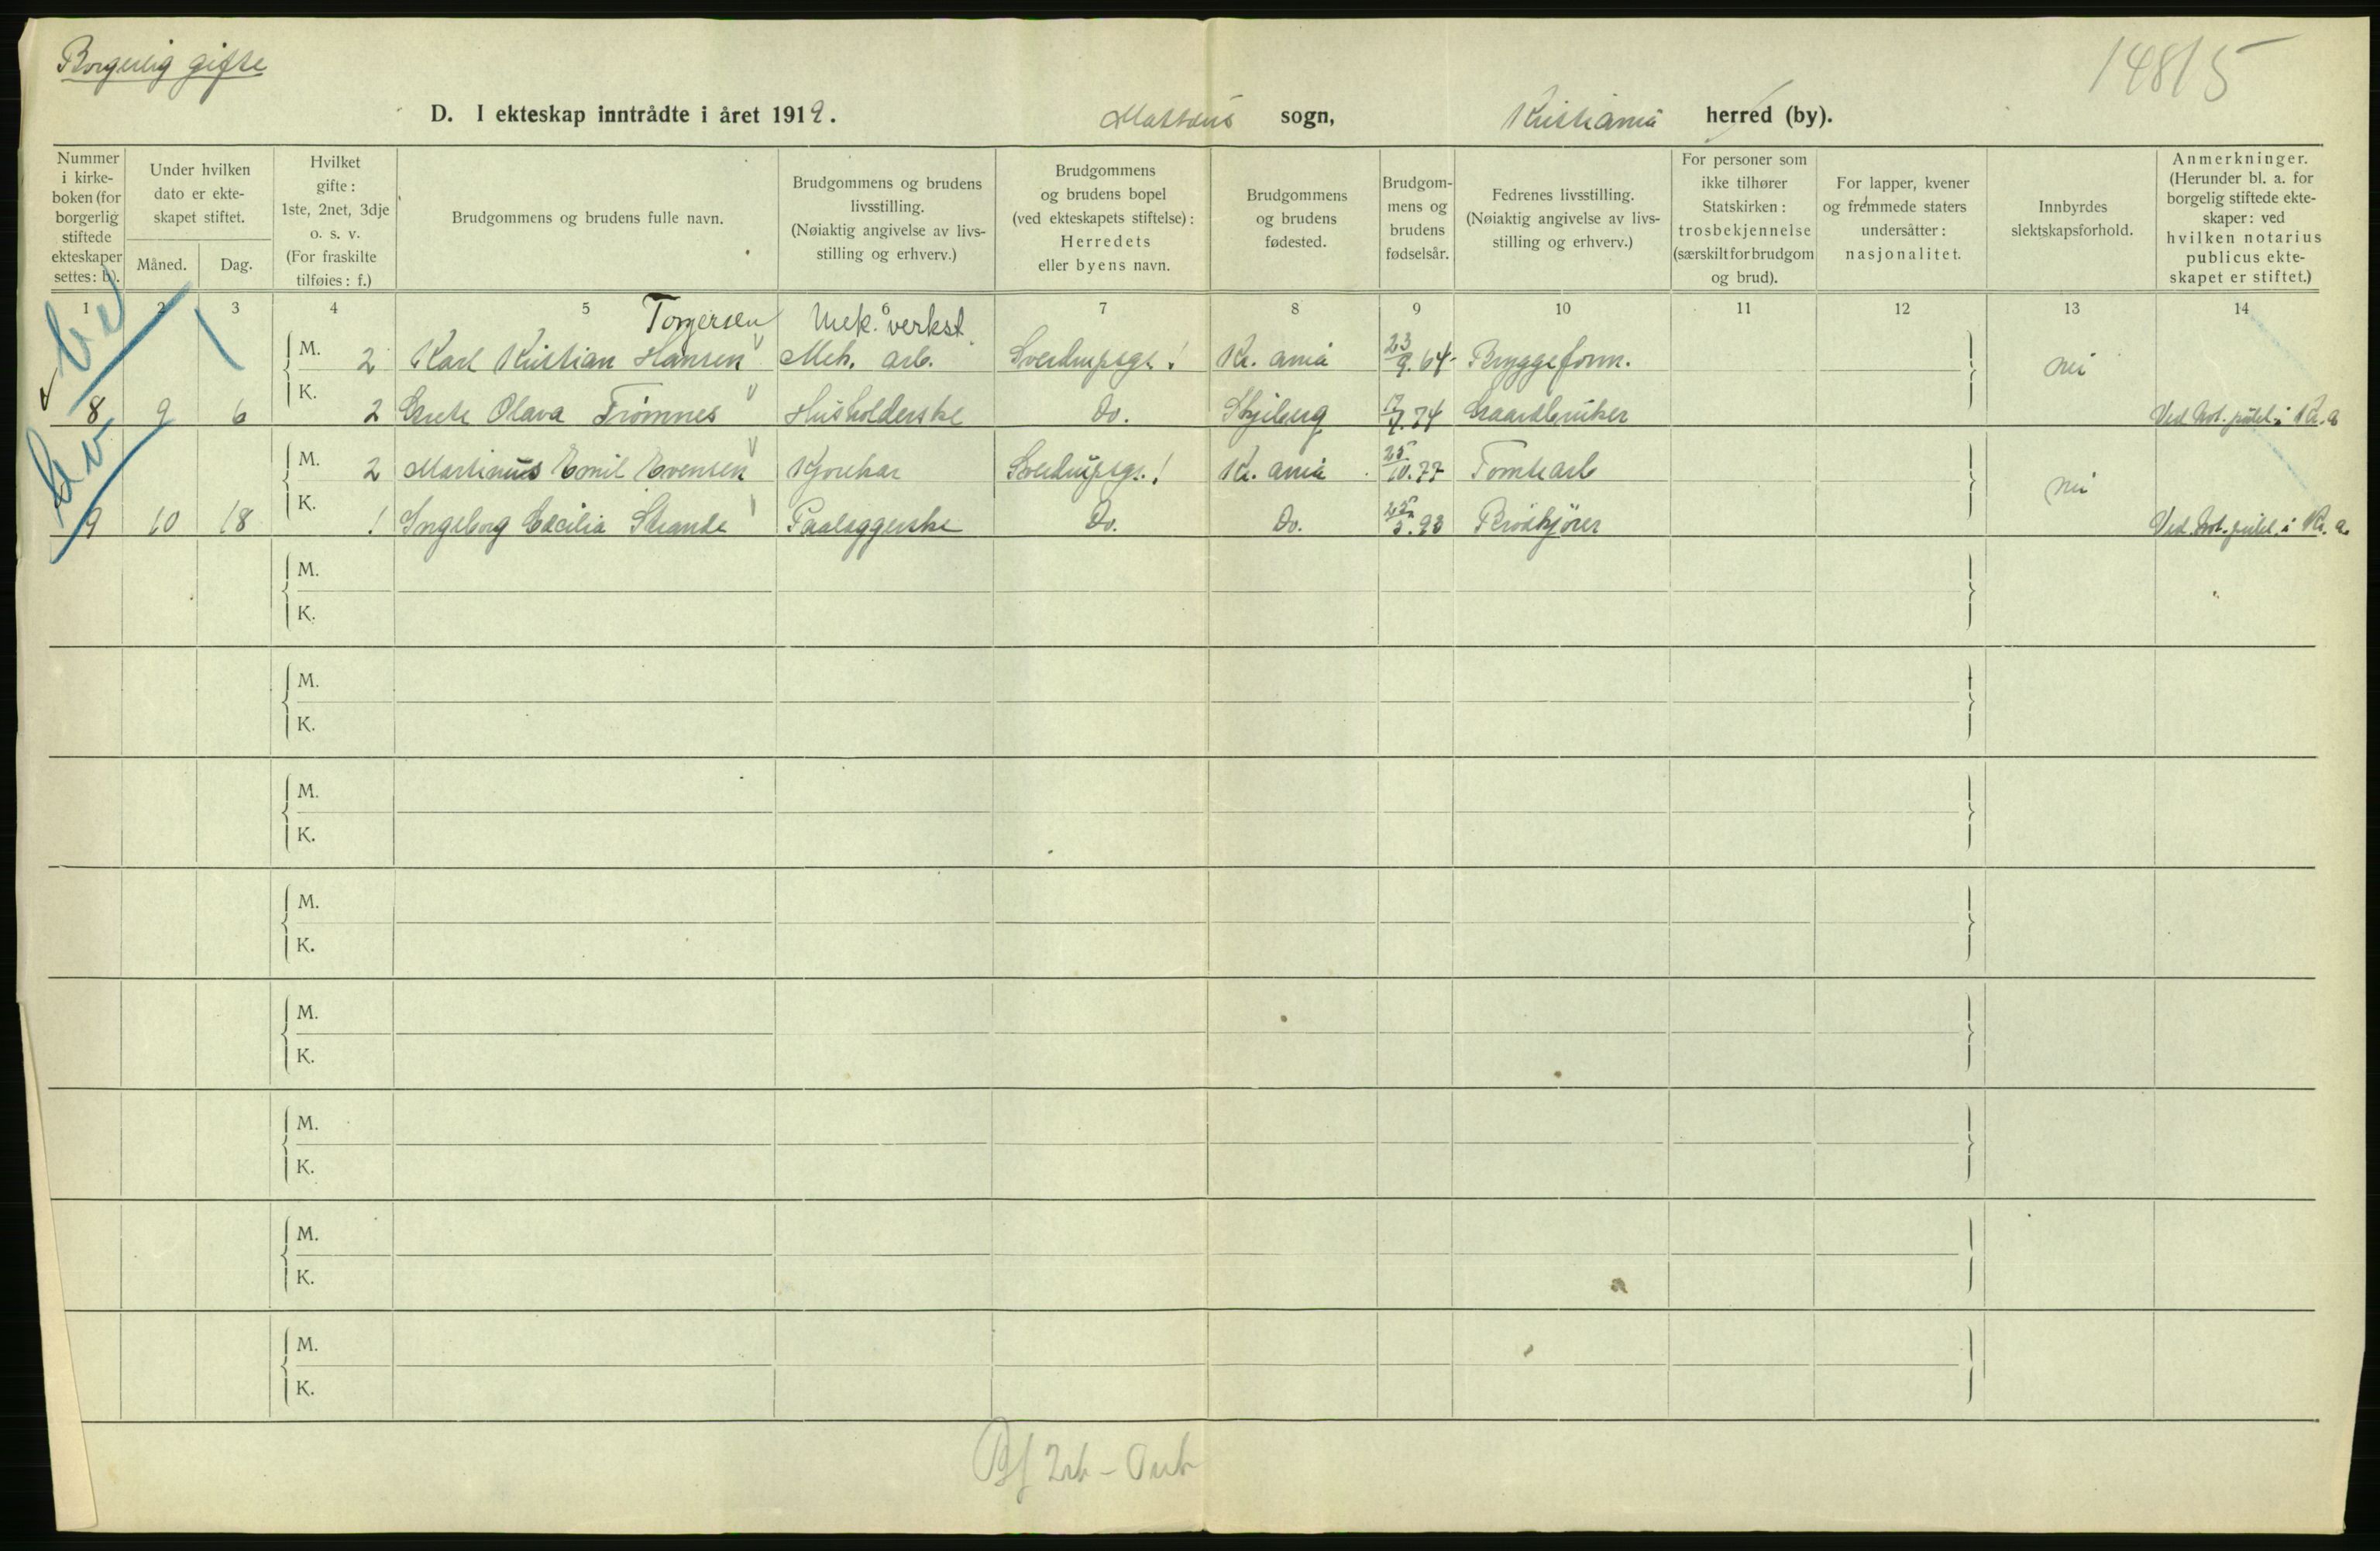 Borgerlig gifte
14815
D. I ekteskap inntrådte i året 1919. Mattæus sogn, Kristiania herred (by).
Nummer i kirkeboken (for borgerlig stiftede ekteskaper settes: b).
Under hvilken dato er ekteskapet stiftet.
Måned.
Dag.
Hvilket gifte: 1ste, 2net, 3dje o. s. v. (For fraskilte tilføies: f.)
Brudgommens og brudens fulle navn.
Brudgommens og brudens livsstilling. (Nøiaktig angivelse av livsstilling og erhverv.)
Brudgommens og brudens bopel (ved ekteskapets stiftelse): Herredets eller byens navn.
Brudgommens og brudens fødested.
Brudgommens og brudens fødselsår.
Fedrenes livsstilling. (Nøiaktig angivelse av livsstilling og erhverv.)
For personer som ikke tilhører Statskirken: trosbekjennelse (særskilt for brudgom og brud).
For lapper, kvener og fremmede staters undersåtter: nasjonalitet.
Innbyrdes slektskapsforhold.
Anmerkninger. (Herunder bl. a. for borgelig stiftede ekteskaper: ved hvilken notarius publicus ekteskapet er stiftet.)
1 2 3 4 5 6 7 8 9 10 11 12 13 14
Torgersen Mek. verkst.
M. 2 Karl Kristian Hansen Mek. arb. Sverdrupsgt. ! Kr. ania 23/9.64 Bryggeform. nei
8 9 6 K. 2 Grete Olava Trømnes Husholderske Do. Skjeberg 7.74 Gaardbruker Ved Not. publ. i Kr. a
M. 2 Martinus Emil Evensen Kjørekar Sverdrupsgt. ! Kr. ania 25/10.77 Tomtearb nei
9 10 18 K. 1 Ingeborg Cecilia Strande Paalæggerske Do. Do. 5.93 Brødkjører Ved Not. publ. i Kr. a.
M.
K.
M.
K.
M.
K.
M.
K.
M.
K.
M.
K.
M.
K.
M.
K.